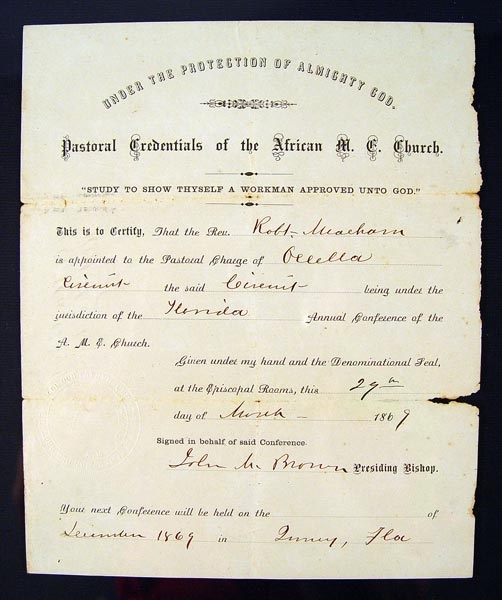 UNDER THE PROTECTION OF ALMIGHTY GOD.
Pastoral Credentials of the African M. E. Church.
"STUDY TO SHOW THYSELF A WORKMAN APPROVED UNTO GOD."
This is to Certify, That the Rev. Robt. Meacham
is appointed to the Pastoral Charge of Ocella
Circuit the said Circuit being under the
jurisdiction of the Florida Annual Conference of the
A. M. E. Church.
Given under my hand and the Denominational Seal,
at the Episcopal Rooms, this 29th
day of March 1869
Signed in behalf of said Conference.
John M. Brown Presiding Bishop.
Your next Conference will be held on the of
December 1869 in Quincy, Fla